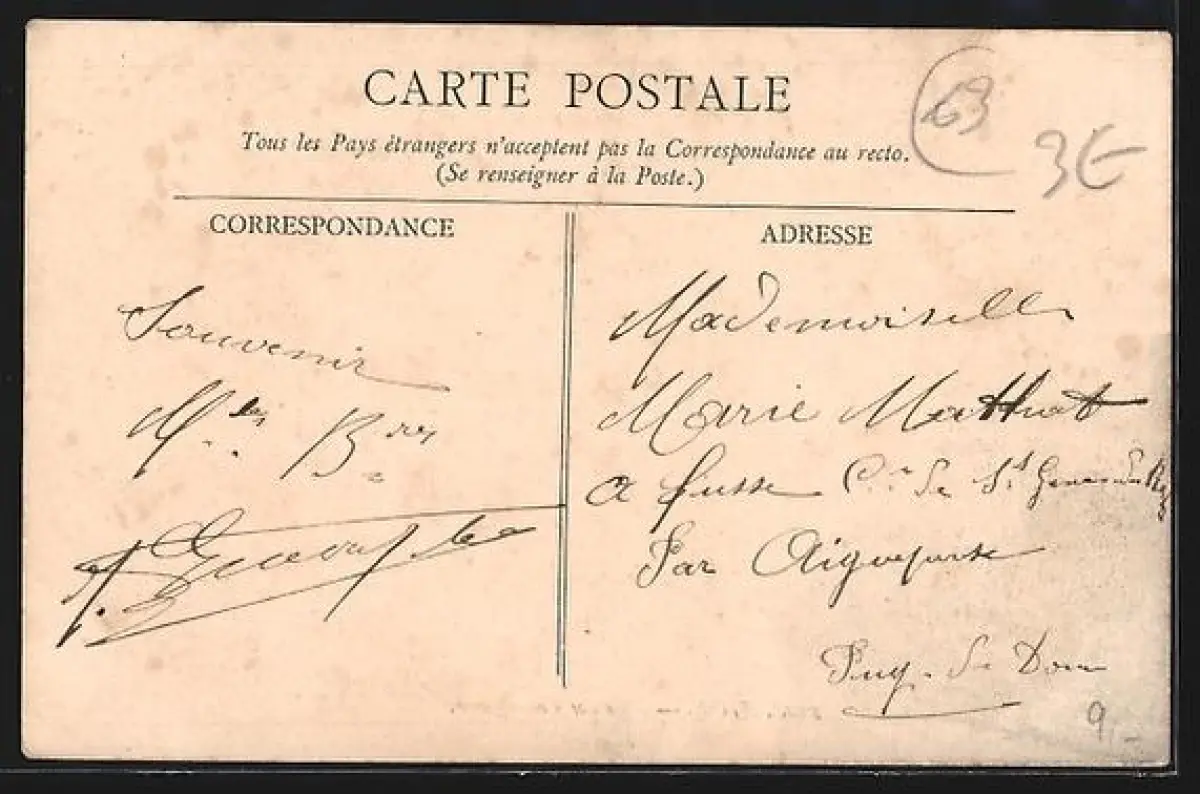 CARTE POSTALE
63
3€
Tous les Pays étrangers n'acceptent pas la Correspondance au recto.
(Se renseigner à la Poste.)
CORRESPONDANCE
ADRESSE
Souvenir
Mlles Bres
Mademoiselle
Marie Mathat
a Cne de St Genes du Retz
Par Aigueperse
Puy-de Dome
9.-